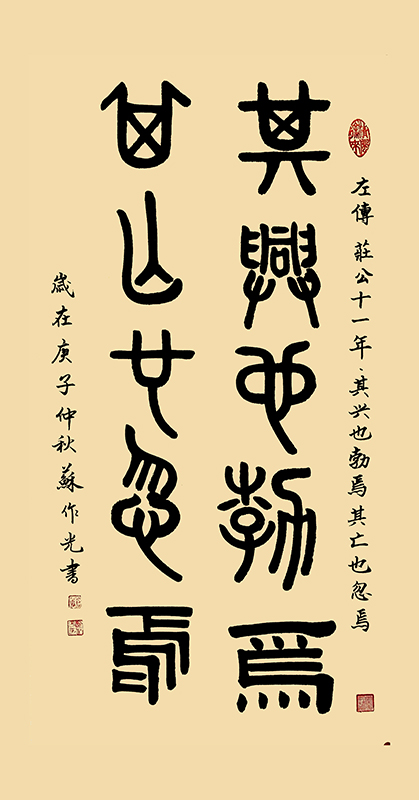 左傳 莊公十一年、其兴也勃焉其亡也忽焉
其興也勃焉
其亡也忽焉
歲在庚子仲秋蘇作光書